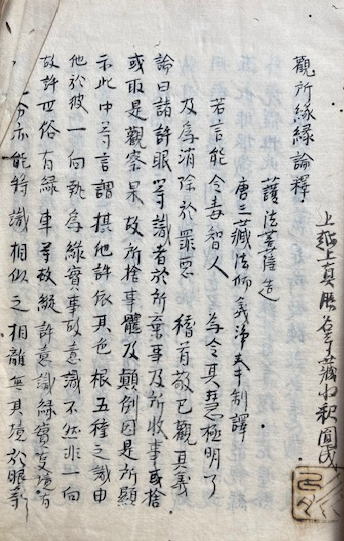 觀所緣緣論釋
護法菩薩造
唐三藏法師義淨奉制譯
若言能令毒智人　為令其慧極明了
及為消除於罪惡　稽首敬已觀其義
論曰諸許眼等識者於所棄事及所收事或捨
或取是觀察果故所捨事體及顛倒因是所顯
示此中等言謂攝他許依其色根五種之識由
他於彼一向執為緣實事故意識不然非一向
故許世俗有緣車等故縱許意識緣實事境有
分亦能將識相似之相離無其境於眼等